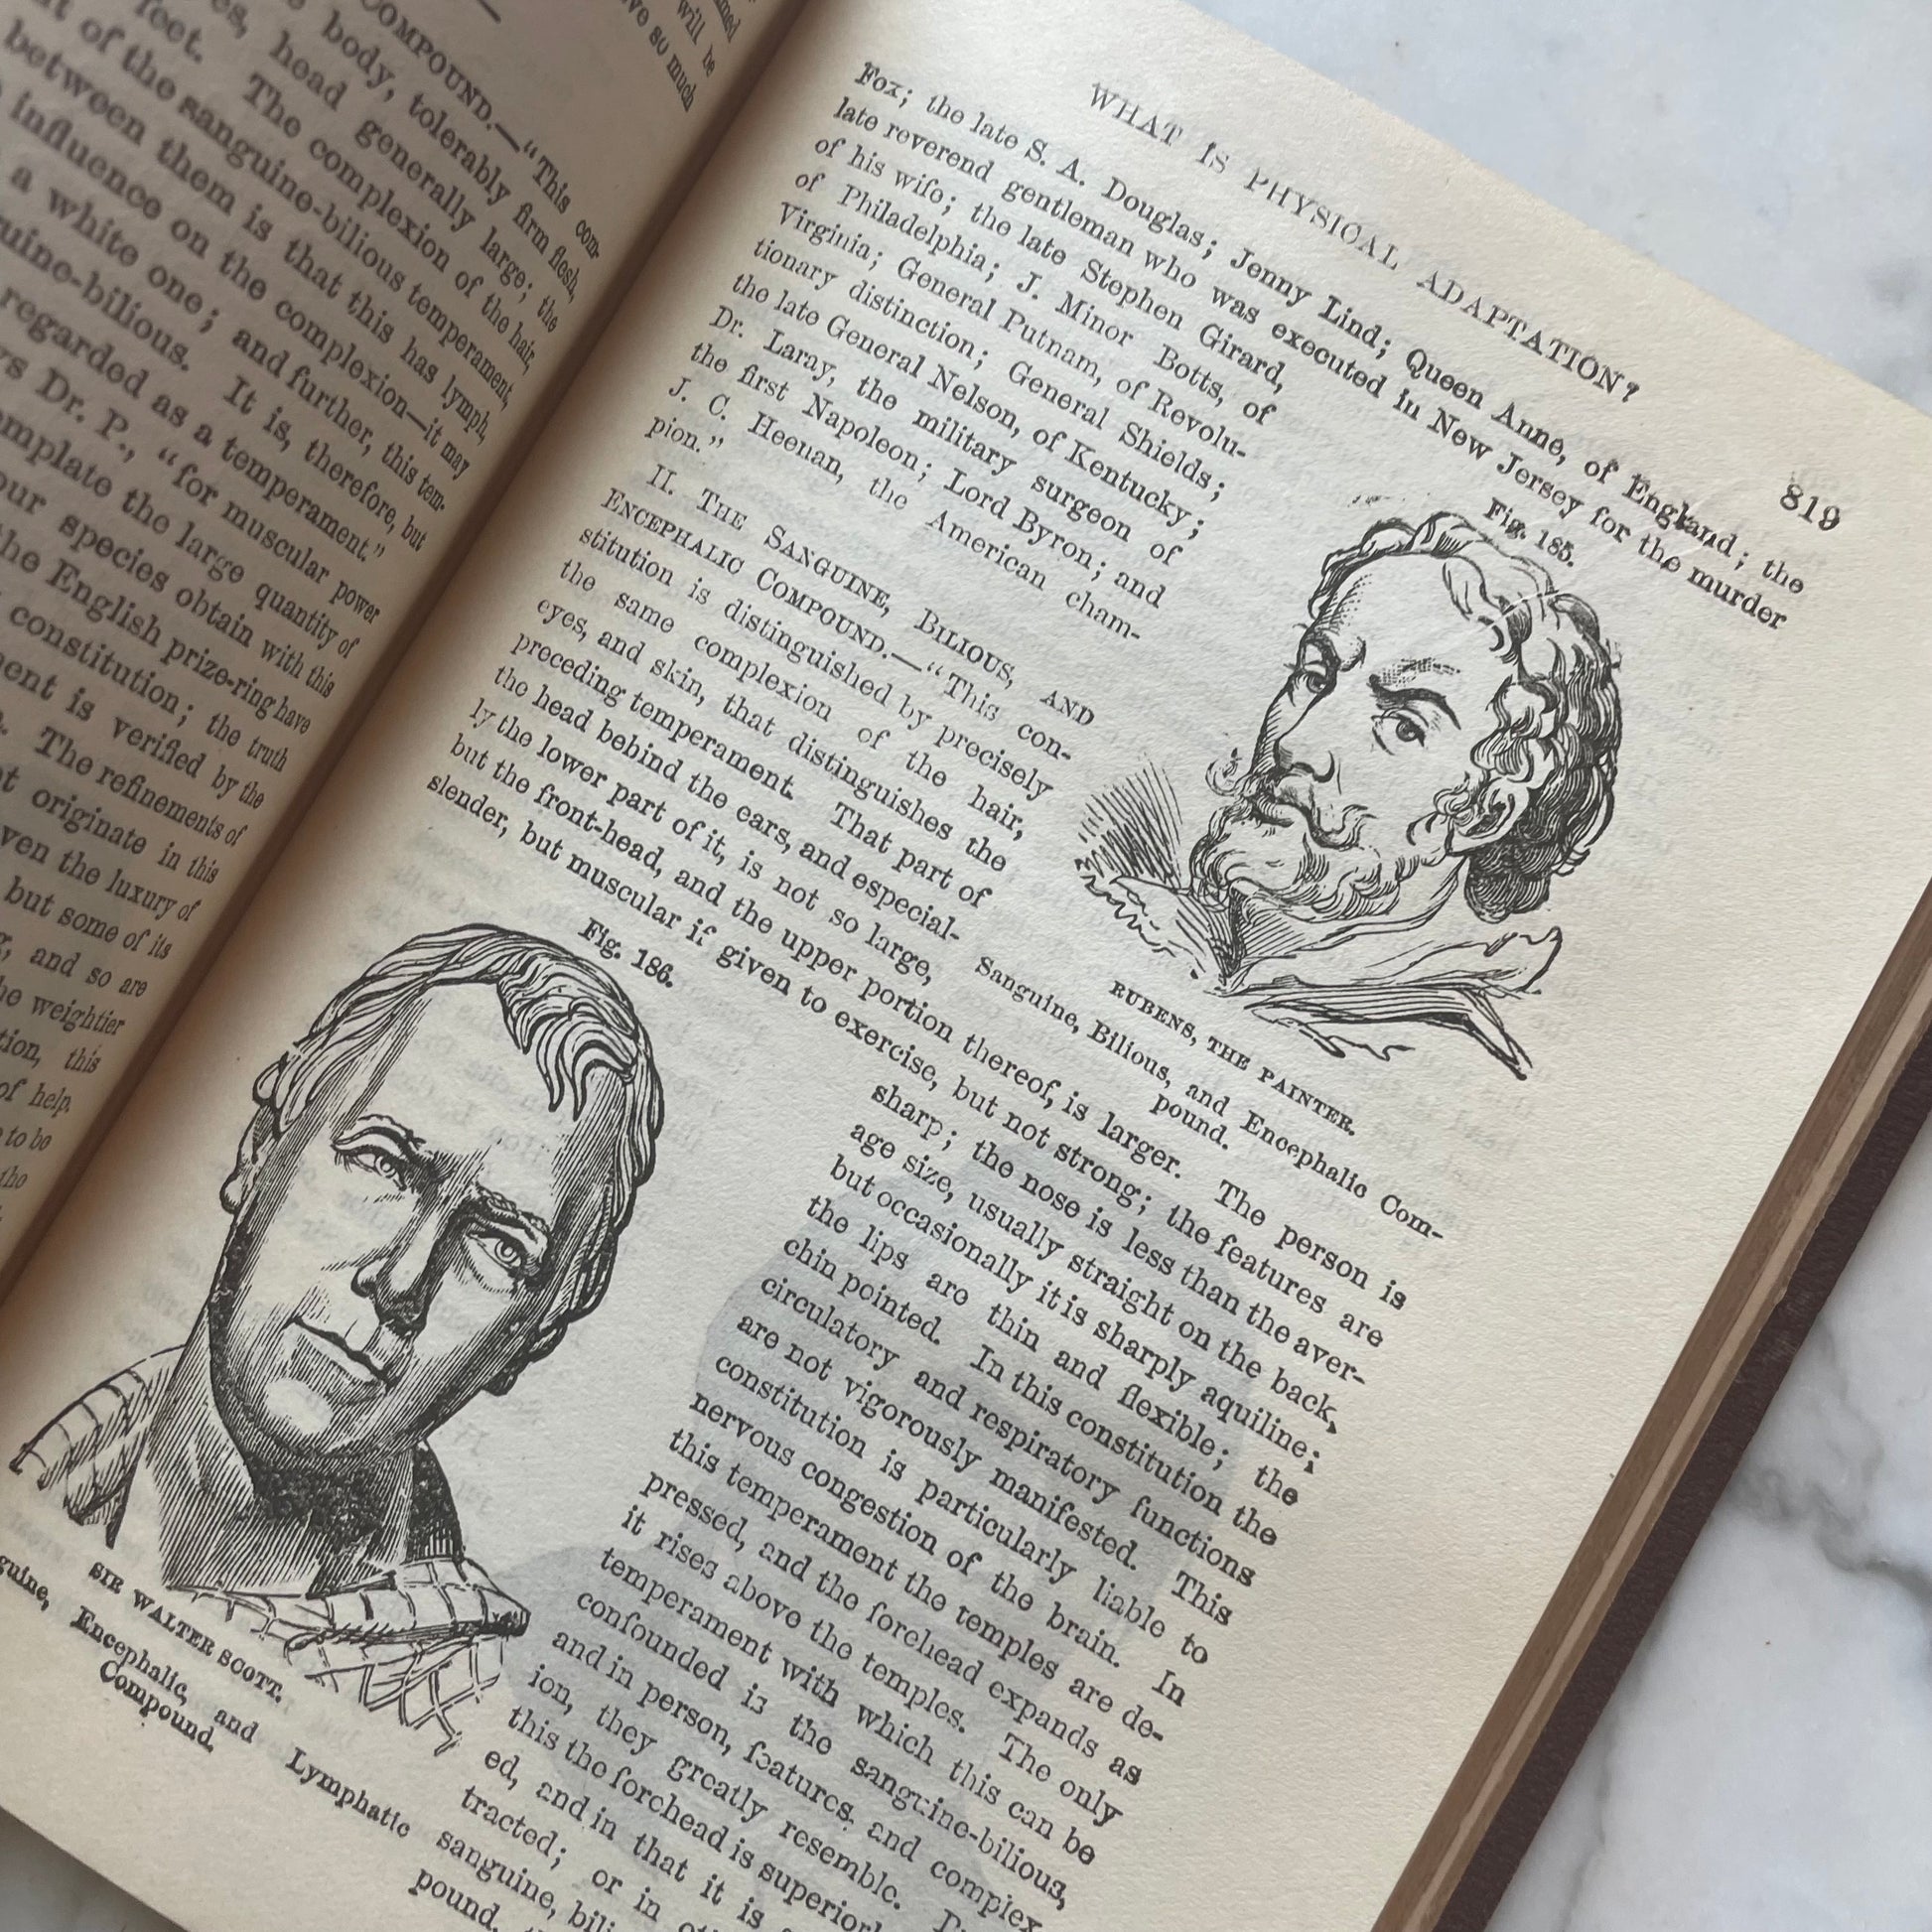 COMPOUND.—"This com-
body, tolerably firm flesh,
head generally large; the
feet. The complexion of the hair,
of the sanguine-bilious temperament,
between them is that this has lymph,
influence on the complexion—it may
a white one; and further, this tem-
bilious. It is, therefore, but
regarded as a temperament."
Dr. P., "for muscular power
the large quantity of
our species obtain with this
the English prize-ring have
constitution; the truth
is verified by the
The refinements of
originate in this
the luxury of
but some of its
and so are
weightier
this
of help.
to be
the
will be
so much
WHAT IS PHYSICAL ADAPTATION? 819
Fox; the late S. A. Douglas; Jenny Lind; Queen Anne, of England; the
late reverend gentleman who was executed in New Jersey for the murder
of his wife; the late Stephen Girard,
of Philadelphia; J. Minor Botts, of
Virginia; General Putnam, of Revolu-
tionary distinction; General Shields;
the late General Nelson, of Kentucky;
Dr. Laray, the military surgeon of
the first Napoleon; Lord Byron; and
J. C. Heenan, the American cham-
pion."
II. THE SANGUINE, BILIOUS, AND
ENCEPHALIC COMPOUND.—"This con-
stitution is distinguished by precisely
the same complexion of the hair,
eyes, and skin, that distinguishes the
preceding temperament. That part of
the head behind the ears, and especial-
ly the lower part of it, is not so large,
but the front-head, and the upper portion thereof, is larger. The person is
slender, but muscular if given to exercise, but not strong; the features are
Fig. 185.
RUBENS, THE PAINTER.
Sanguine, Bilious, and Encephalic Com-
pound.
sharp; the nose is less than the aver-
age size, usually straight on the back,
but occasionally it is sharply aquiline;
the lips are thin and flexible; the
chin pointed. In this constitution the
circulatory and respiratory functions
are not vigorously manifested. This
constitution is particularly liable to
nervous congestion of the brain. In
this temperament the temples are de-
pressed, and the forehead expands as
it rises above the temples. The only
temperament with which this can be
confounded is the sanguine-bilious,
and in person, features, and complex
ion, they greatly resemble.
this the forehead is
ed, and in that it is
tracted; or in
sanguine,
pound.
Fig. 186.
SIR WALTER SCOTT.
Encephalic, and Lymphatic
Compound.